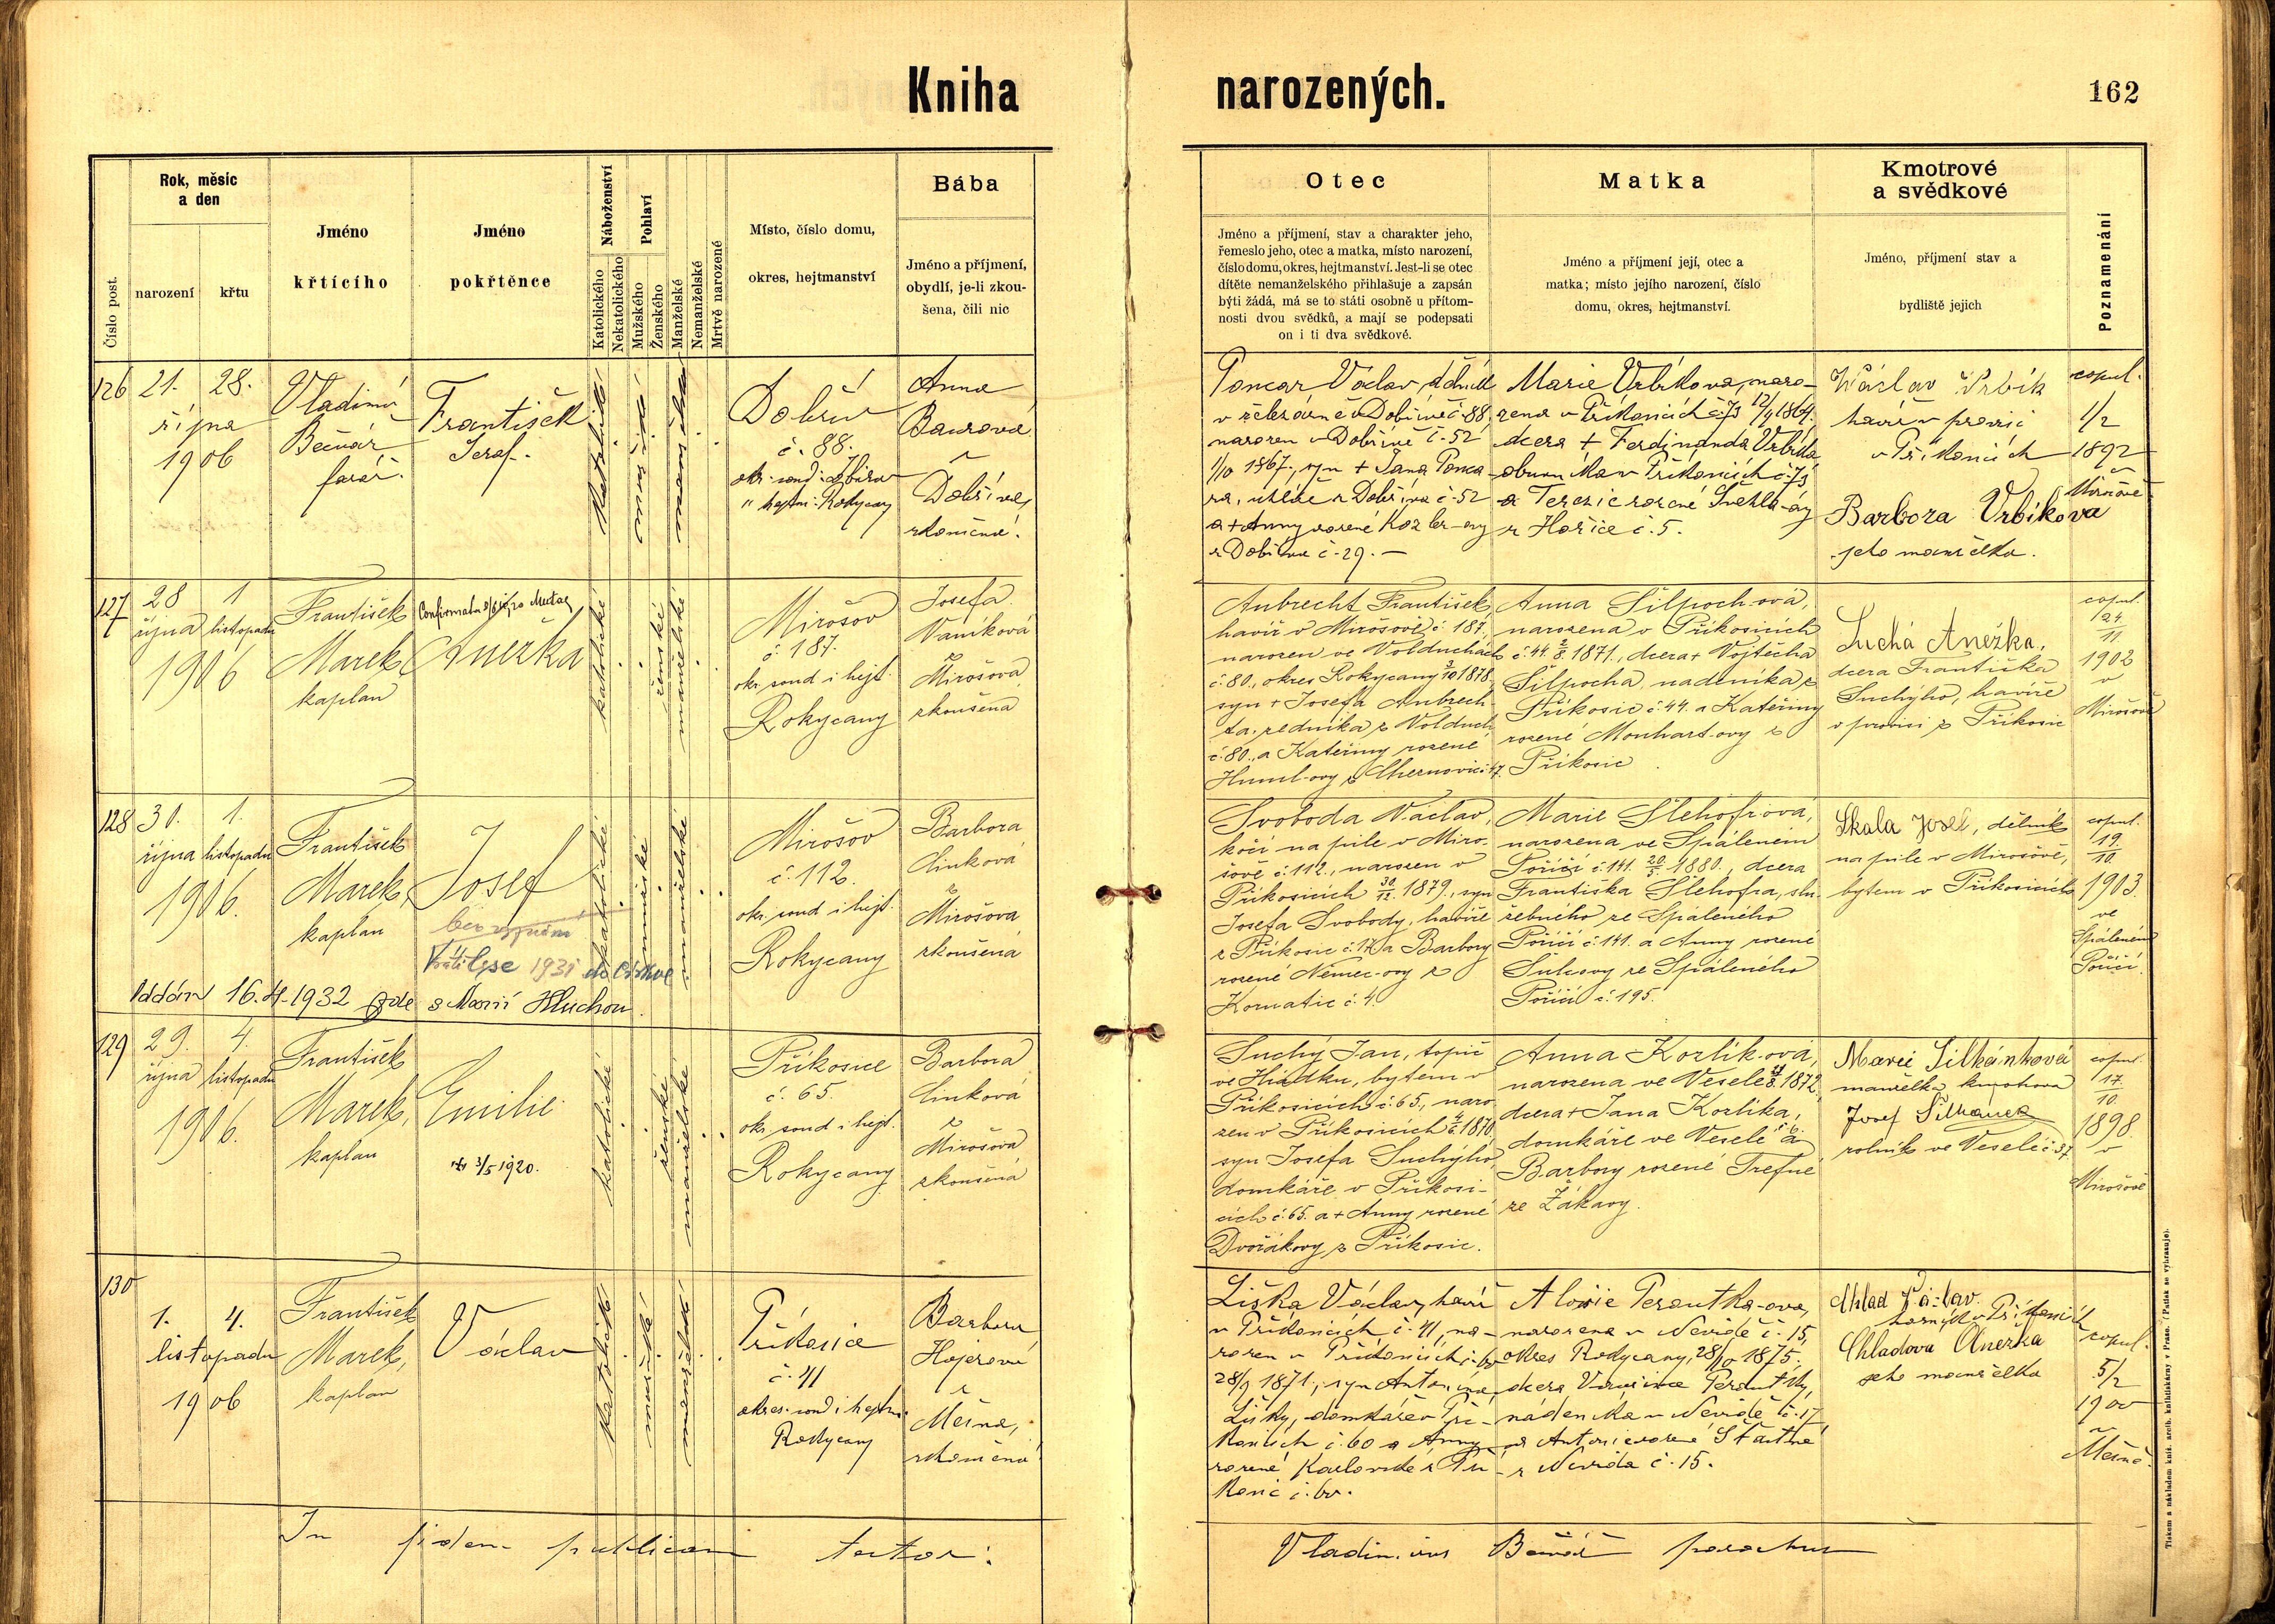 Kniha narozených.
162
Rok, měsíc
a den
Číslo post.
narození
křtu
Jméno
křtícího
Jméno
pokřtěnce
Náboženství
Katolického
Nekatolického
Pohlaví
Mužského
Ženského
Manželské
Nemanželské
Mrtvě narozené
Místo, číslo domu,
okres, hejtmanství
Bába
Jméno a příjmení,
obydlí, je-li zkou-
šena, čili nic
Otec
Jméno a příjmení, stav a charakter jeho,
řemeslo jeho, otec a matka, místo narození,
číslo domu, okres, hejtmanství. Jest-li se otec
dítěte nemanželského přihlašuje a zapsán
býti žádá, má se to státi osobně u přítom-
nosti dvou svědků, a mají se podepsati
on i ti dva svědkové.
Matka
Jméno a příjmení její, otec a
matka; místo jejího narození, číslo
domu, okres, hejtmanství.
Kmotrové
a svědkové
Jméno, příjmení stav a
bydliště jejich
Poznamenání
126
21. 28.
října
1906
Vladimír
Bečvář
farář.
František
Seraf.
katolické
mužské
manželské
Dobřív
č. 88.
okr. soud: Zbirov
" hejtm: Rokycany
Anna
Baurová
z
Dobříva,
zkoušená.
Poncar Václav, dělník
v železárně v Dobřívě č. 88,
narozen v Dobřívě č. 52
1/10 1867, syn + Jana Ponca-
ra, uhlíře z Dobříva č. 52
a + Anny rozené Kozler-ovy
z Dobříva č. 29. —
Marie Vrbíkova, naro-
zena v Příkosicích č. 73 12/9 1869.
dcera + Ferdinanda Vrbíka
obuvníka v Příkosicích č. 73
a Terezie rozené Světla-ovy
z Hořice č. 5.
Wáclav Vrbík
havíř v provisi
v Příkosicích
Barbora Vrbíkova
jeho manželka.
copul.
1/2
1892
v
Mirošově
127
28 1
října listopadu
1906
František
Marek,
kaplan
Anežka
katolické
ženské
manželské
Mirošov
č. 187.
okr. soud i hejt.
Rokycany
Josefa
Vaníková
z
Mirošova
zkoušena
Aubrecht František,
havíř v Mirošově č. 187,
narozen ve Volduchách
č. 80., okres Rokycany 3/10 1878,
syn + Josefa Aubrech-
ta, zedníka z Volduch
č. 80., a Kateřiny rozené
Huml-ovy z Chernovic č. 47.
Anna Šilpoch-ová,
narozena v Příkosicích
č. 44. 2/8. 1871., dcera + Vojtěcha
Šilpocha, nádeníka z
Příkosic č. 44. a Kateřiny
rozené Monhart-ovy z
Příkosic.
Suchá Anežka,
dcera Františka
Suchýho, havíře
v provisi z Příkosic
copul.
24.
11.
1902
v
Mirošově
128
31. 1.
října listopadu
1906.
František
Marek,
kaplan
Josef
bez vyznání
Vrátil se 1931 do Církve
Oddán 16.4.1932 zde s Marií Hluchou.
katolické
mužské
manželské
Mirošov
č. 112.
okr. soud i hejt.
Rokycany
Barbora
Linková
z
Mirošova
zkoušená
Svoboda Václav,
kočí na pile v Miro-
šově č. 112., narozen v
Příkosicích 30/12. 1879., syn
Josefa Svobody, havíře
z Příkosic č. 12. a Barbory
rozené Němec-ovy z
Kornatic č. 4.
Marie Šlehofrová,
narozena ve Spáleném
Poříčí č. 141. 20/5. 1880., dcera
Františka Šlehofra, slu-
žebného ze Spáleného
Poříčí č. 141. a Anny rozené
Šulcovy ze Spáleného
Poříčí č. 195.
Skala Josef, dělník
na pile v Mirošově,
bytem v Příkosicích
copul.
19.
10.
1903.
ve
Spáleném
Poříčí.
129
29. 4.
října listopadu
1906.
František
Marek,
kaplan
Emilie.
3/5 1920.
katolické
ženské
manželské
Příkosice
č. 65.
okr. soud i hejt.
Rokycany
Barbora
Linková
z
Mirošova
zkoušená
Suchý Jan, topič
ve Hrádku, bytem v
Příkosicích č. 65., naro-
zen v Příkosicích 1870,
syn Josefa Suchýho,
domkáře v Příkosi-
cích č. 65. a + Anny rozené
Dvořákovy z Příkosic.
Anna Kozlík-ová,
narozena ve Veselé 1872,
dcera + Jana Kozlíka,
domkáře ve Veselé a
Barbory rozené Trefné
ze Žákavy.
Marie Silhánková
manželka kmotrova
Josef Silhánek
rolník ve Veselé č. 37.
copul.
17.
10.
1898.
v
Mirošově
130
1. 4.
listopadu
1906
František
Marek,
kaplan
Václav
katolické
mužské
manželské
Příkosice
č. 41
okres. soud i hejtm.
Rokycany
Barbora
Hojerová
z
Mešna,
zkoušená.
Liška Václav, havíř
v Příkosicích č. 41, na-
rozen v Příkosicích č. 60
28/9 1871, syn Antonína
Lišky, domkáře v Pří-
kosicích č. 60 a Anny
rozené Karlovské z Pří-
kosic č. 60.
Aloisie Peroutka-ova,
narozena v Nevidě č. 15,
okres Rokycany, 28/10 1875,
dcera Peroutky,
nádeníka v Nevidě č. 17
a Antonie rozené Šťastné
z Nevida č. 15.
Chlad Václav.
horník v Příkosicích
Chladova Anežka
jeho manželka
copul.
5/2
1900
v
Mešně.
In fidem publicam testor:
Vladimirus Bečvář parochus
Tiskem a nákladem kníž. arcib. knihtiskárny v Praze. (Patisk se vyhrazuje).